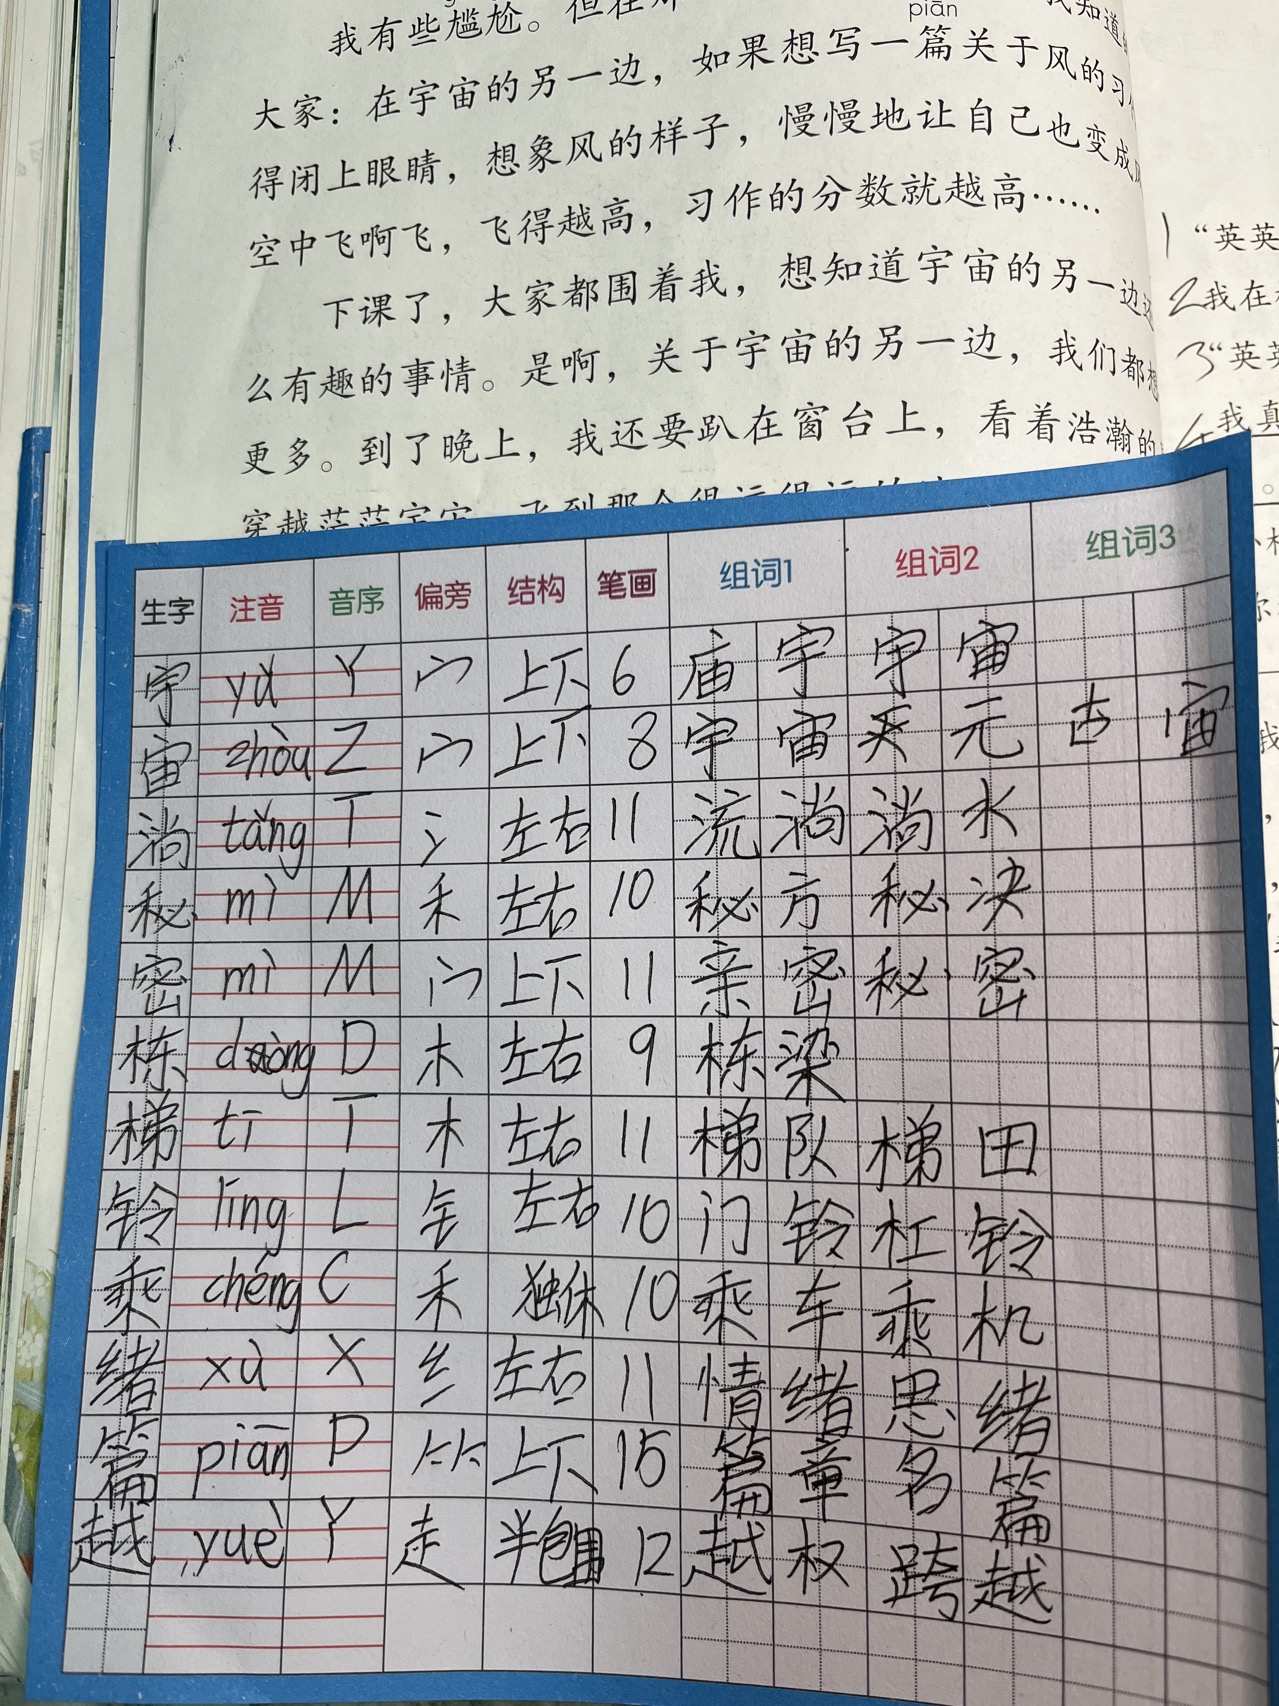 piān
我有些尴尬。但在
大家：在宇宙的另一边，如果想写一篇关于风的习
得闭上眼睛，想象风的样子，慢慢地让自己也变成
空中飞啊飞，飞得越高，习作的分数就越高……
下课了，大家都围着我，想知道宇宙的另一边
么有趣的事情。是啊，关于宇宙的另一边，我们都想
更多。到了晚上，我还要趴在窗台上，看着浩瀚的
1 “英英
2 我在
3 “英英
我真
生字 注音 音序 偏旁 结构 笔画 组词1 组词2 组词3
宇 yǔ Y 宀 上下 6 庙宇 宇宙
宙 zhòu Z 宀 上下 8 宇宙 天元 古宙
淌 tǎng T 氵 左右 11 流淌 淌水
秘 mì M 禾 左右 10 秘方 秘决
密 mì M 宀 上下 11 亲密 秘密
栋 dòng D 木 左右 9 栋梁
梯 tī T 木 左右 11 梯队 梯田
铃 líng L 钅 左右 10 门铃 杠铃
乘 chéng C 禾 独体 10 乘车 乘机
绪 xù X 纟 左右 11 情绪 思绪
篇 piān P ⺮ 上下 15 篇章 名篇
越 yuè Y 走 半包围 12 越权 跨越